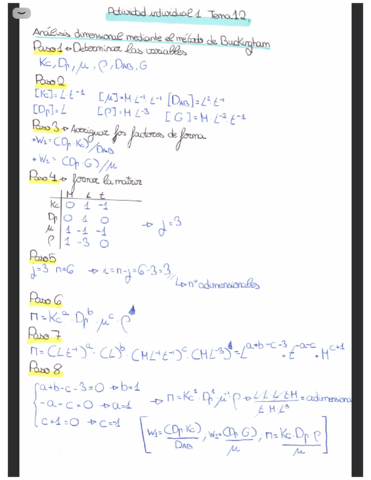 Actividad individual 1 Tema 12.
Análisis dimensional mediante el método de Buckingham
Paso 1 → Determinar las variables
Kc, Dp, μ, ρ, DAB, G
Paso 2
[Kc] = L t⁻¹ [μ] = M L⁻¹ t⁻¹ [DAB] = L² t⁻¹
[Dp] = L [ρ] = M L⁻³ [G] = M L⁻² t⁻¹
Paso 3 → Averiguar los factores de forma
• W₁ = (Dp Kc)/DAB
• W₂ = (Dp G)/μ
Paso 4 → formar la matriz
M L t
Kc 0 1 -1
Dp 0 1 0
μ 1 -1 -1 → j=3
ρ 1 -3 0
Paso 5
j=3 n=6 → i=n-j=6-3=3 // ↳ nº adimensionales
Paso 6
π = Kcᵃ Dpᵇ μᶜ ρ
Paso 7
π = (L t⁻¹)ᵃ · (L)ᵇ · (M L⁻¹ t⁻¹)ᶜ · (M L⁻³) = L^(a+b-c-3) · t^(-a-c) · M^(c+1)
Paso 8
a+b-c-3=0 → b=1
-a-c=0 → a=1 → π = Kc¹ · Dp¹ μ⁻¹ ρ = L·L·L·t·M / t M L³ = adimensional
c+1=0 → c=-1
[W₁ = (Dp Kc)/DAB, W₂ = (Dp G)/μ, π = Kc·Dp ρ/μ]